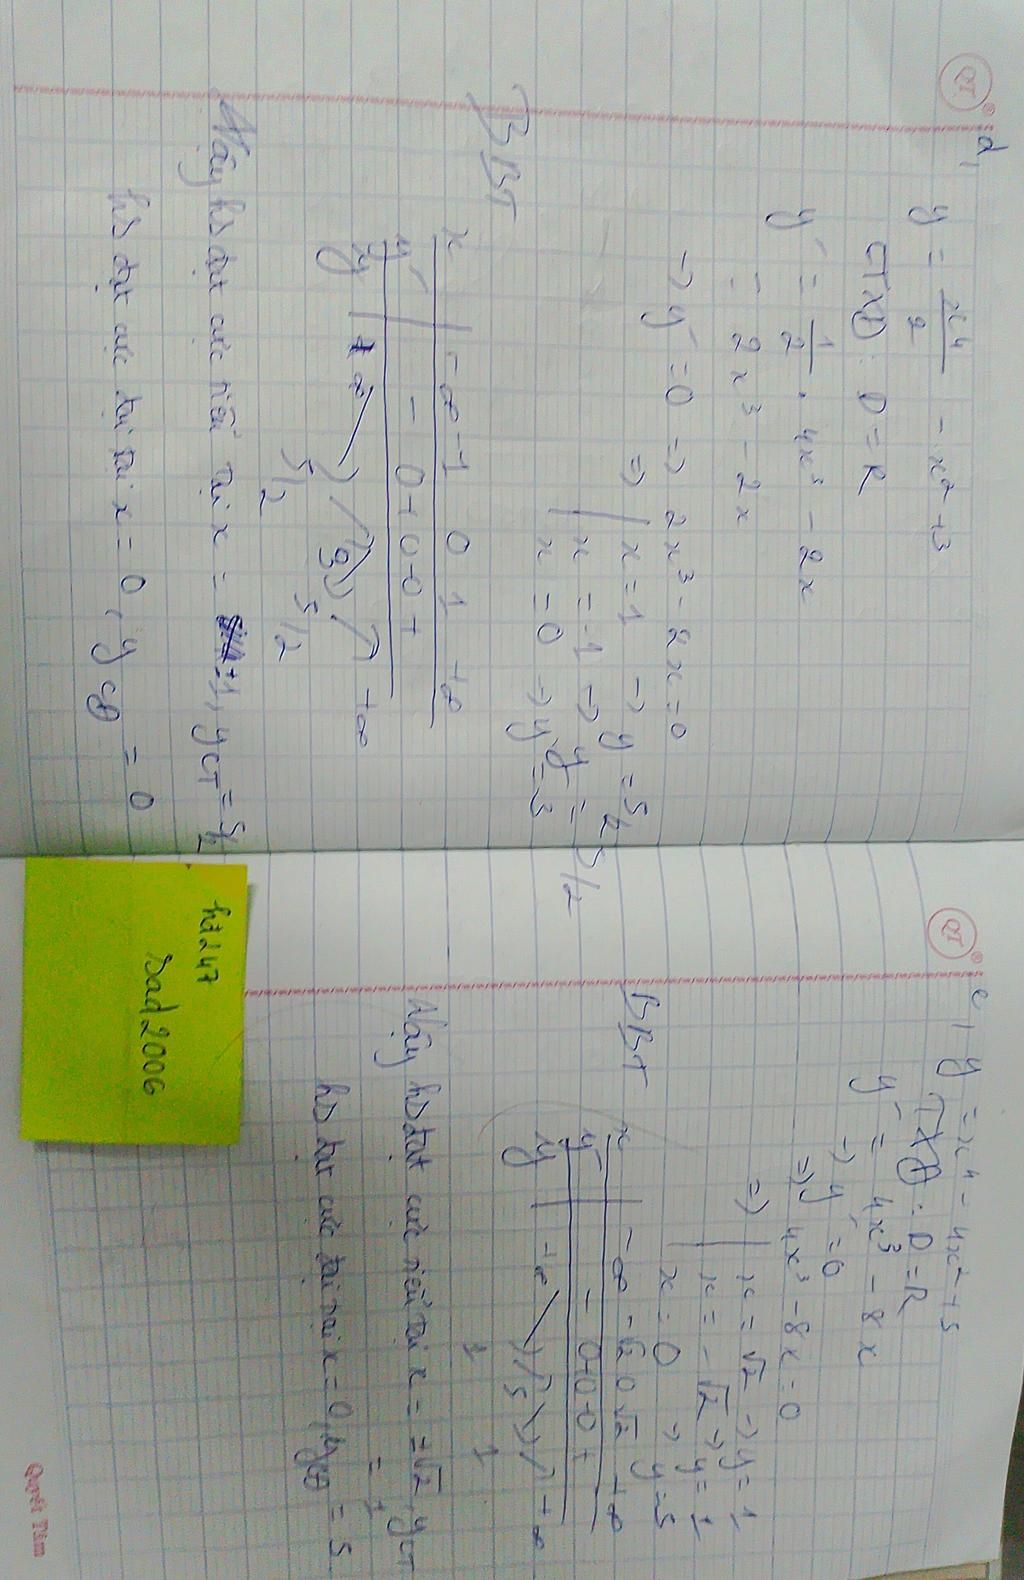 QT ®
d,
y = x⁴/2 - x² + 3
TXĐ: D = R
y' = 1/2 . 4x³ - 2x
= 2x³ - 2x
→ y' = 0 => 2x³ - 2x = 0
=> x = 1 → y = 5/2
x = -1 → y = 5/2
x = 0 → y = 3
BBT
x -∞ -1 0 1 +∞
y' - 0 + 0 - 0 +
y +∞ 3 +∞
5/2 5/2
Vậy hs đạt cực tiểu tại x = ±1, yCT = 5/2
hs đạt cực đại tại x = 0, yCĐ = 0
QT ®
e, y = x⁴ - 4x² + 5
TXĐ: D = R
y' = 4x³ - 8x
→ y' = 0
=> 4x³ - 8x = 0
=> x = √2 → y = 1
x = -√2 → y = 1
x = 0 → y = 5
BBT
x -∞ -√2 0 √2 +∞
y' - 0 + 0 - 0 +
y +∞ 5 +∞
1 1
Vậy hs đạt cực tiểu tại x = ±√2, yCT
= 1
hs đạt cực đại tại x = 0, yCĐ = 5
Quyết Tâm
hd247
Dad2006